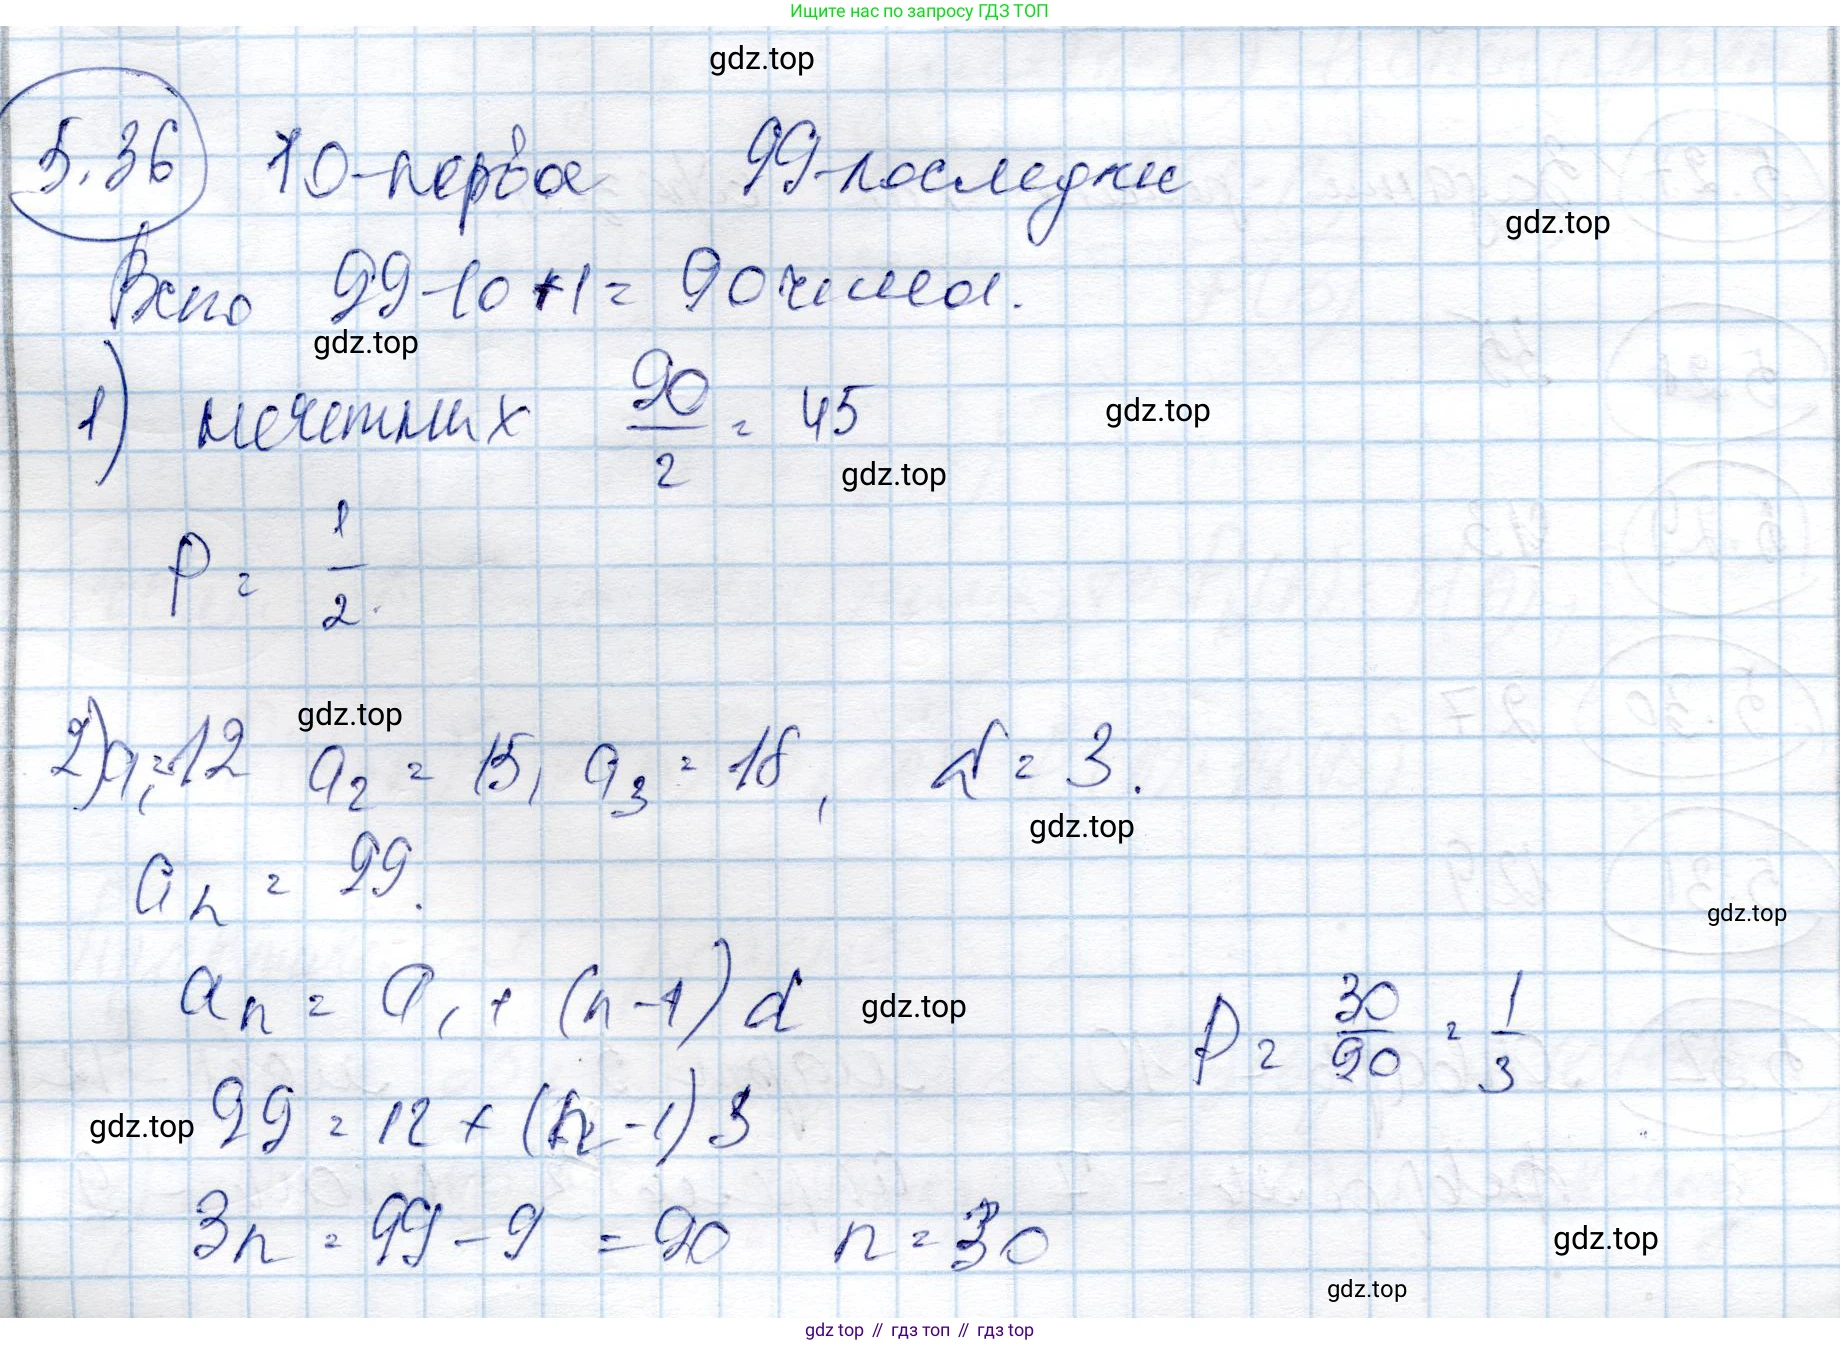 Ищите нас по запросу ГДЗ ТОП
gdz.top
5.36 10-первое 99-последнее
gdz.top
Всего 99-10+1= 90 чисел.
gdz.top
1) нечетных 90/2 = 45
gdz.top
gdz.top
P = 1/2.
gdz.top
2) a₁=12 a₂ = 15, a₃ = 18, d = 3.
gdz.top
aₙ = 99.
gdz.top
aₙ = a₁ + (n-1)d
gdz.top
P = 30/90 = 1/3
gdz.top
99 = 12 + (n-1)3
3n = 99-9 = 90 n = 30
gdz.top
gdz.top
gdz top // гдз топ // гдз top